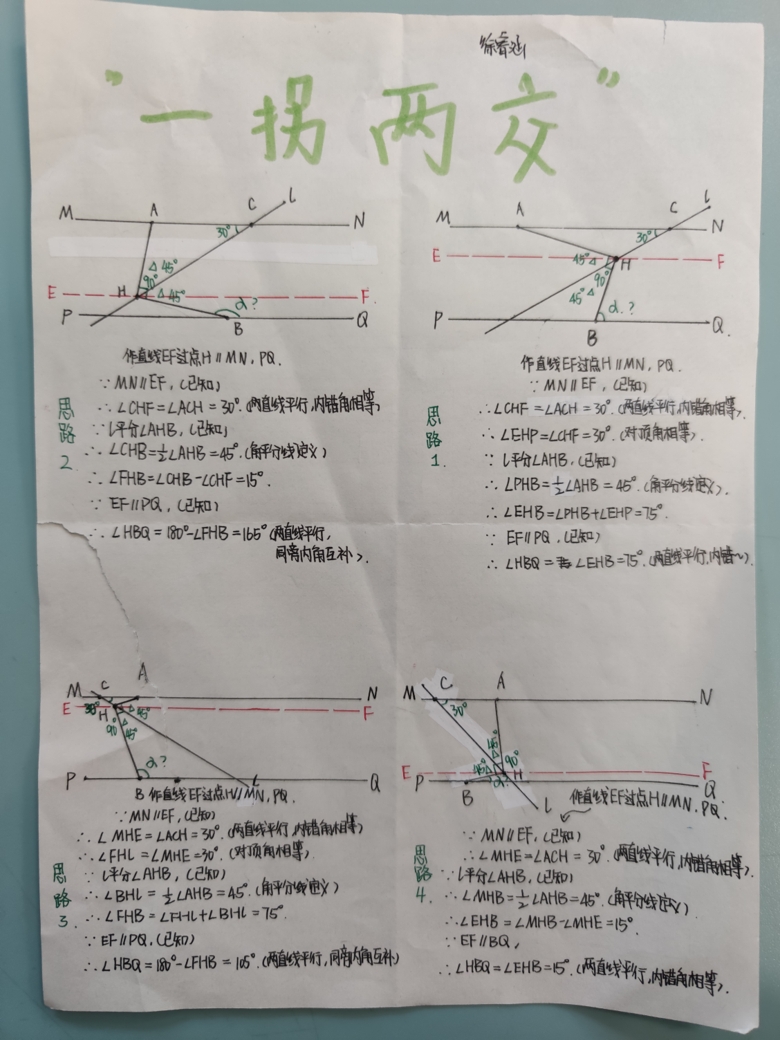 徐睿涵
"一拐两交"
M A C L N
30°
45°
90°
45°
E H F
α?
P B Q
作直线EF过点H∥MN,PQ.
∵MN∥EF,(已知)
∴∠CHF=∠ACH=30°.(两直线平行,内错角相等)
∵l平分∠AHB,(已知)
∴∠CHB=½∠AHB=45°.(角平分线定义)
∴∠FHB=∠CHB-∠CHF=15°.
∵EF∥PQ,(已知)
∴∠HBQ=180°-∠FHB=165°(两直线平行,
同旁内角互补).
思路2.
M A C L N
30°
E H F
45°
90°
45°
α.?
P B Q.
作直线EF过点H∥MN,PQ.
∵MN∥EF,(已知)
∴∠CHF=∠ACH=30°.(两直线平行,内错角相等).
∴∠EHP=∠CHF=30°.(对顶角相等).
∵l平分∠AHB,(已知)
∴∠PHB=½∠AHB=45°.(角平分线定义).
∴∠EHB=∠PHB+∠EHP=75°.
∵EF∥PQ,(已知)
∴∠HBQ=∠EHB=75°.(两直线平行,内错~).
思路1.
M C A N
E 30° H 45° F
90° 45°
α?
P B L Q
作直线EF过点H∥MN,PQ.
∵MN∥EF,(已知)
∴∠MHE=∠ACH=30°.(两直线平行,内错角相等)
∴∠FHL=∠MHE=30°.(对顶角相等).
∵l平分∠AHB,(已知)
∴∠BHL=½∠AHB=45°.(角平分线定义)
∴∠FHB=∠FHL+∠BHL=75°.
∵EF∥PQ,(已知)
∴∠HBQ=180°-∠FHB=105°.(两直线平行,同旁内角互补)
思路3.
M C A N
30°
45° 90°
E 45° H F
P B α? L Q
作直线EF过点H∥MN,PQ.
∵MN∥EF,(已知)
∴∠MHE=∠ACH=30°.(两直线平行,内错角相等).
∵l平分∠AHB,(已知)
∴∠MHB=½∠AHB=45°.(角平分线定义)
∴∠EHB=∠MHB-∠MHE=15°.
∵EF∥BQ,
∴∠HBQ=∠EHB=15°.(两直线平行,内错角相等).
思路4.